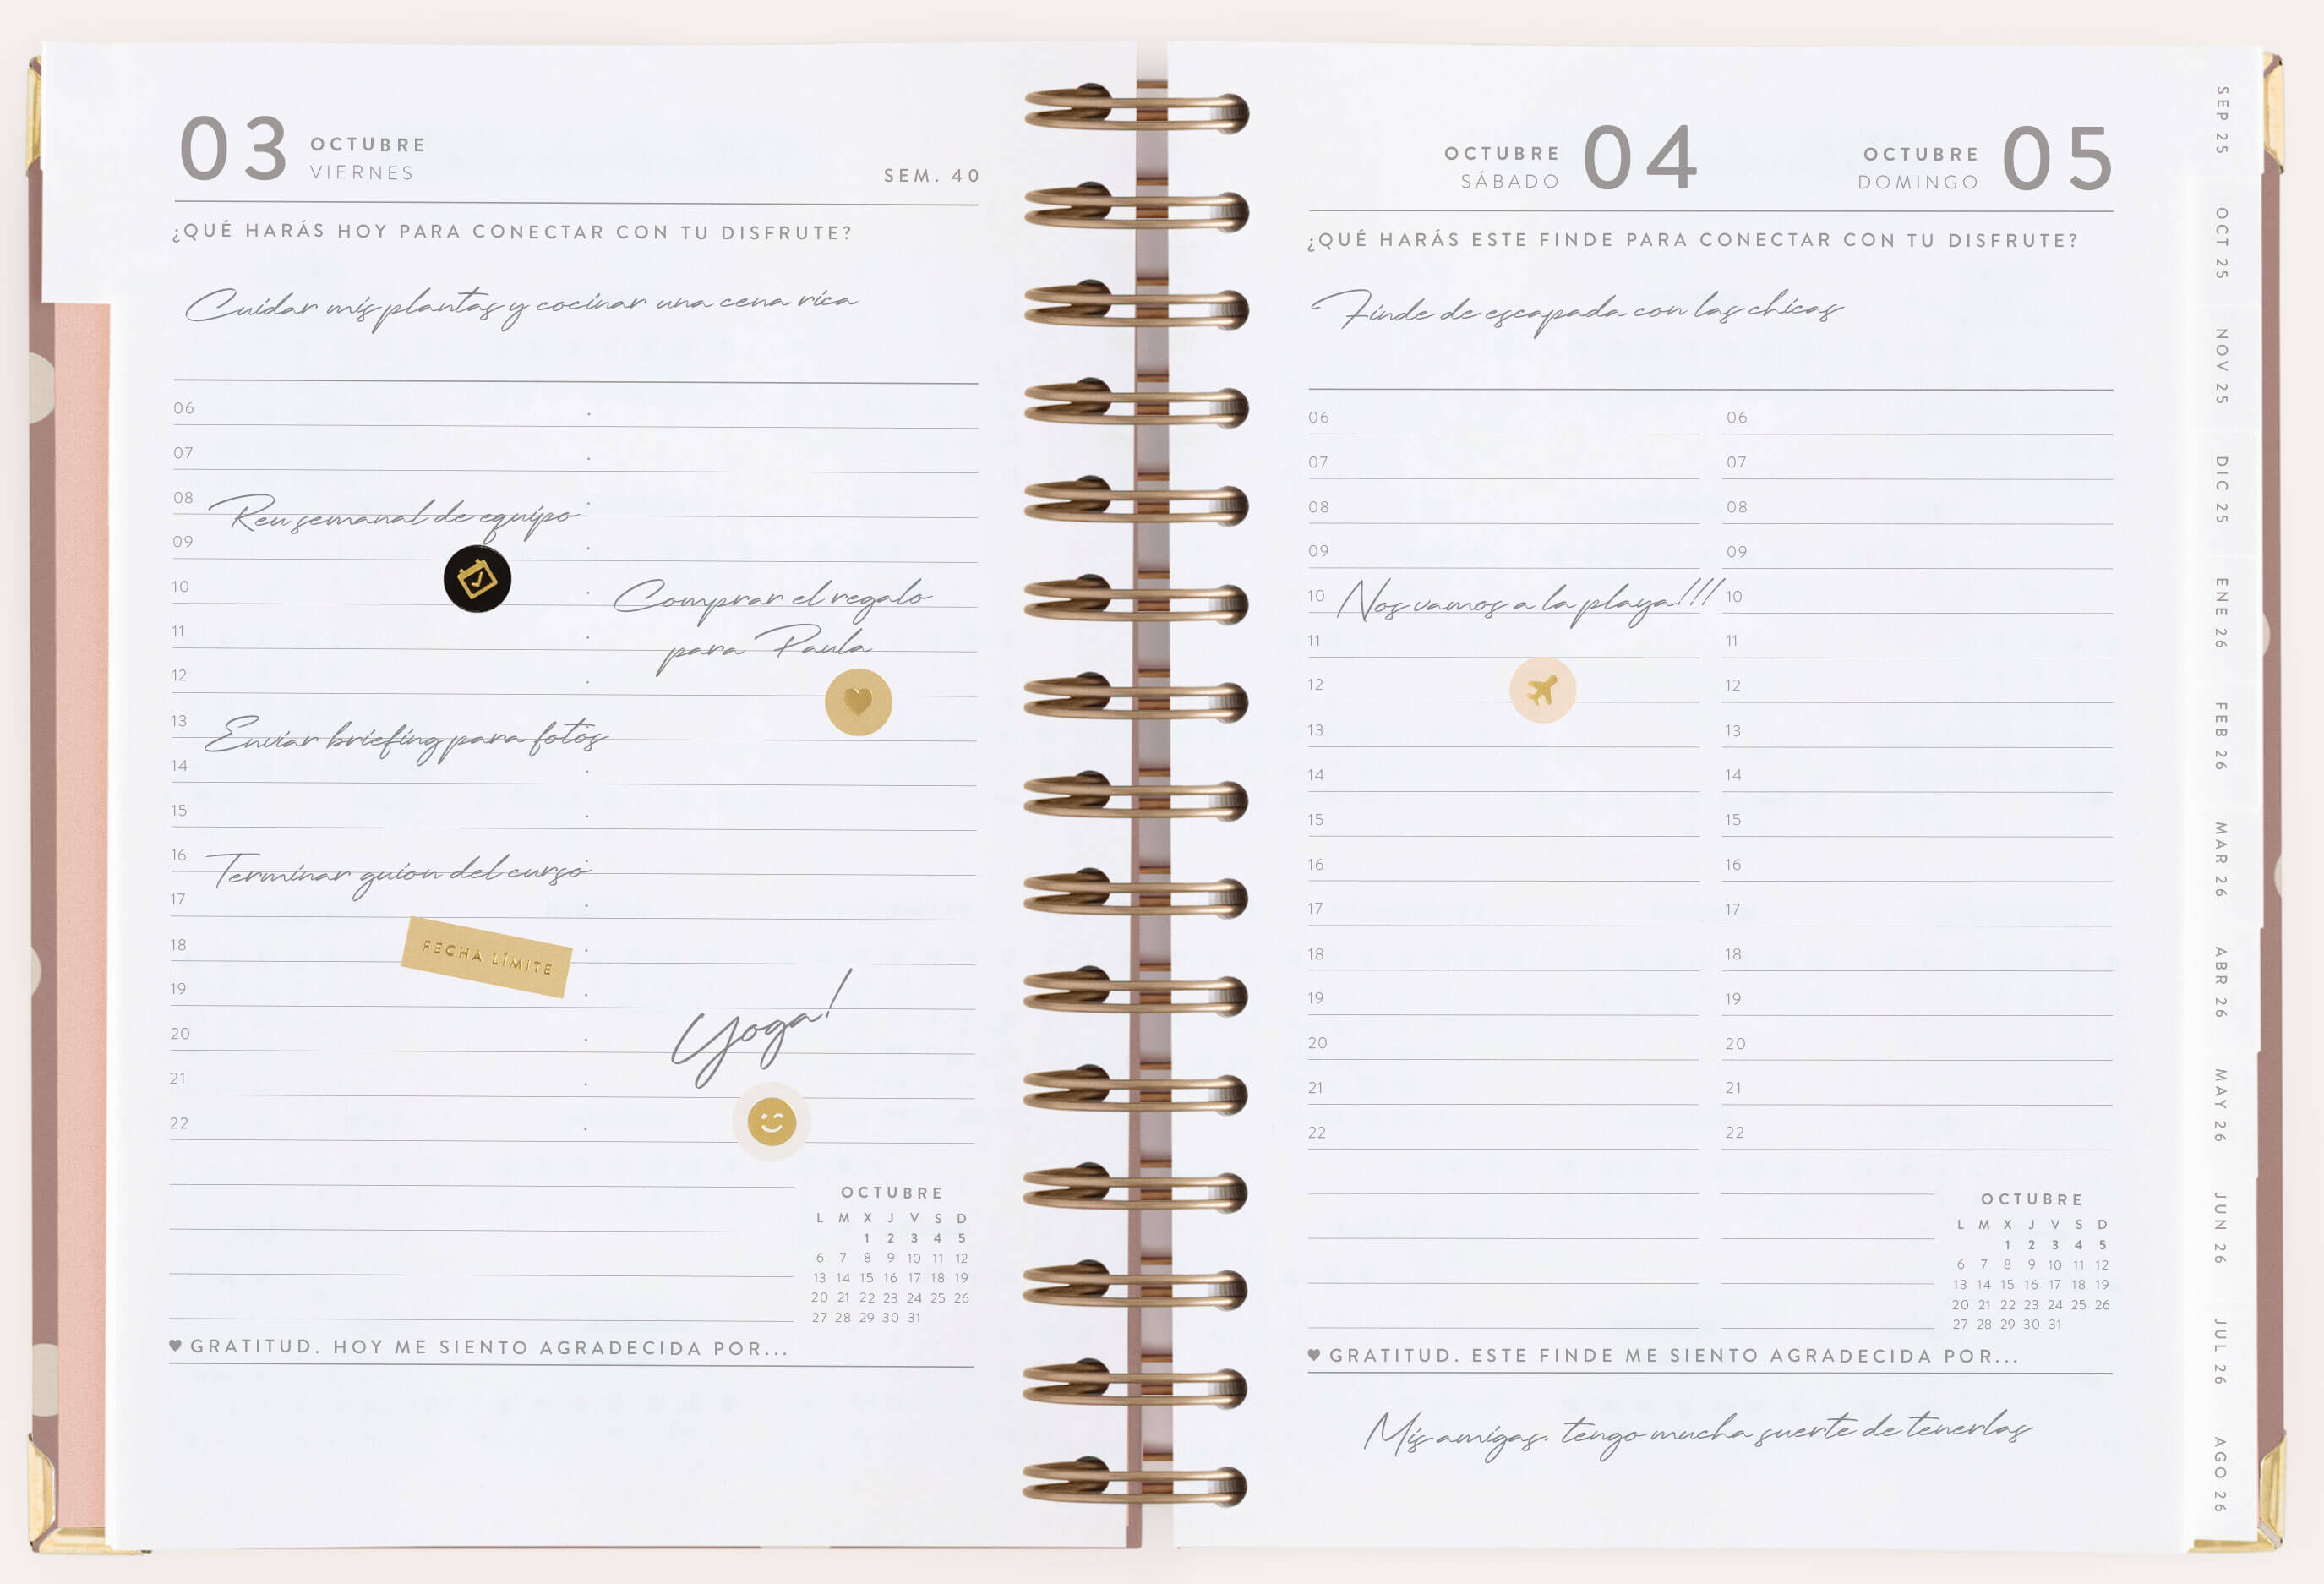 03 OCTUBRE
VIERNES
SEM. 40
¿QUÉ HARÁS HOY PARA CONECTAR CON TU DISFRUTE?
Cuidar mis plantas y cocinar una cena rica
06
07
08 Reu semanal de equipo
09
10 Comprar el regalo
11 para Paula
12
13 Enviar briefing para fotos
14
15
16 Terminar guion del curso
17
18 FECHA LÍMITE
19
20 Yoga!
21
22
OCTUBRE
L M X J V S D
1 2 3 4 5
6 7 8 9 10 11 12
13 14 15 16 17 18 19
20 21 22 23 24 25 26
27 28 29 30 31
GRATITUD. HOY ME SIENTO AGRADECIDA POR...
OCTUBRE 04
SÁBADO
OCTUBRE 05
DOMINGO
¿QUÉ HARÁS ESTE FINDE PARA CONECTAR CON TU DISFRUTE?
Finde de escapada con las chicas
06 06
07 07
08 08
09 09
10 Nos vamos a la playa!!! 10
11 11
12 12
13 13
14 14
15 15
16 16
17 17
18 18
19 19
20 20
21 21
22 22
OCTUBRE
L M X J V S D
1 2 3 4 5
6 7 8 9 10 11 12
13 14 15 16 17 18 19
20 21 22 23 24 25 26
27 28 29 30 31
GRATITUD. ESTE FINDE ME SIENTO AGRADECIDA POR...
Mis amigas. tengo mucha suerte de tenerlas
SEP 25
OCT 25
NOV 25
DIC 25
ENE 26
FEB 26
MAR 26
ABR 26
MAY 26
JUN 26
JUL 26
AGO 26